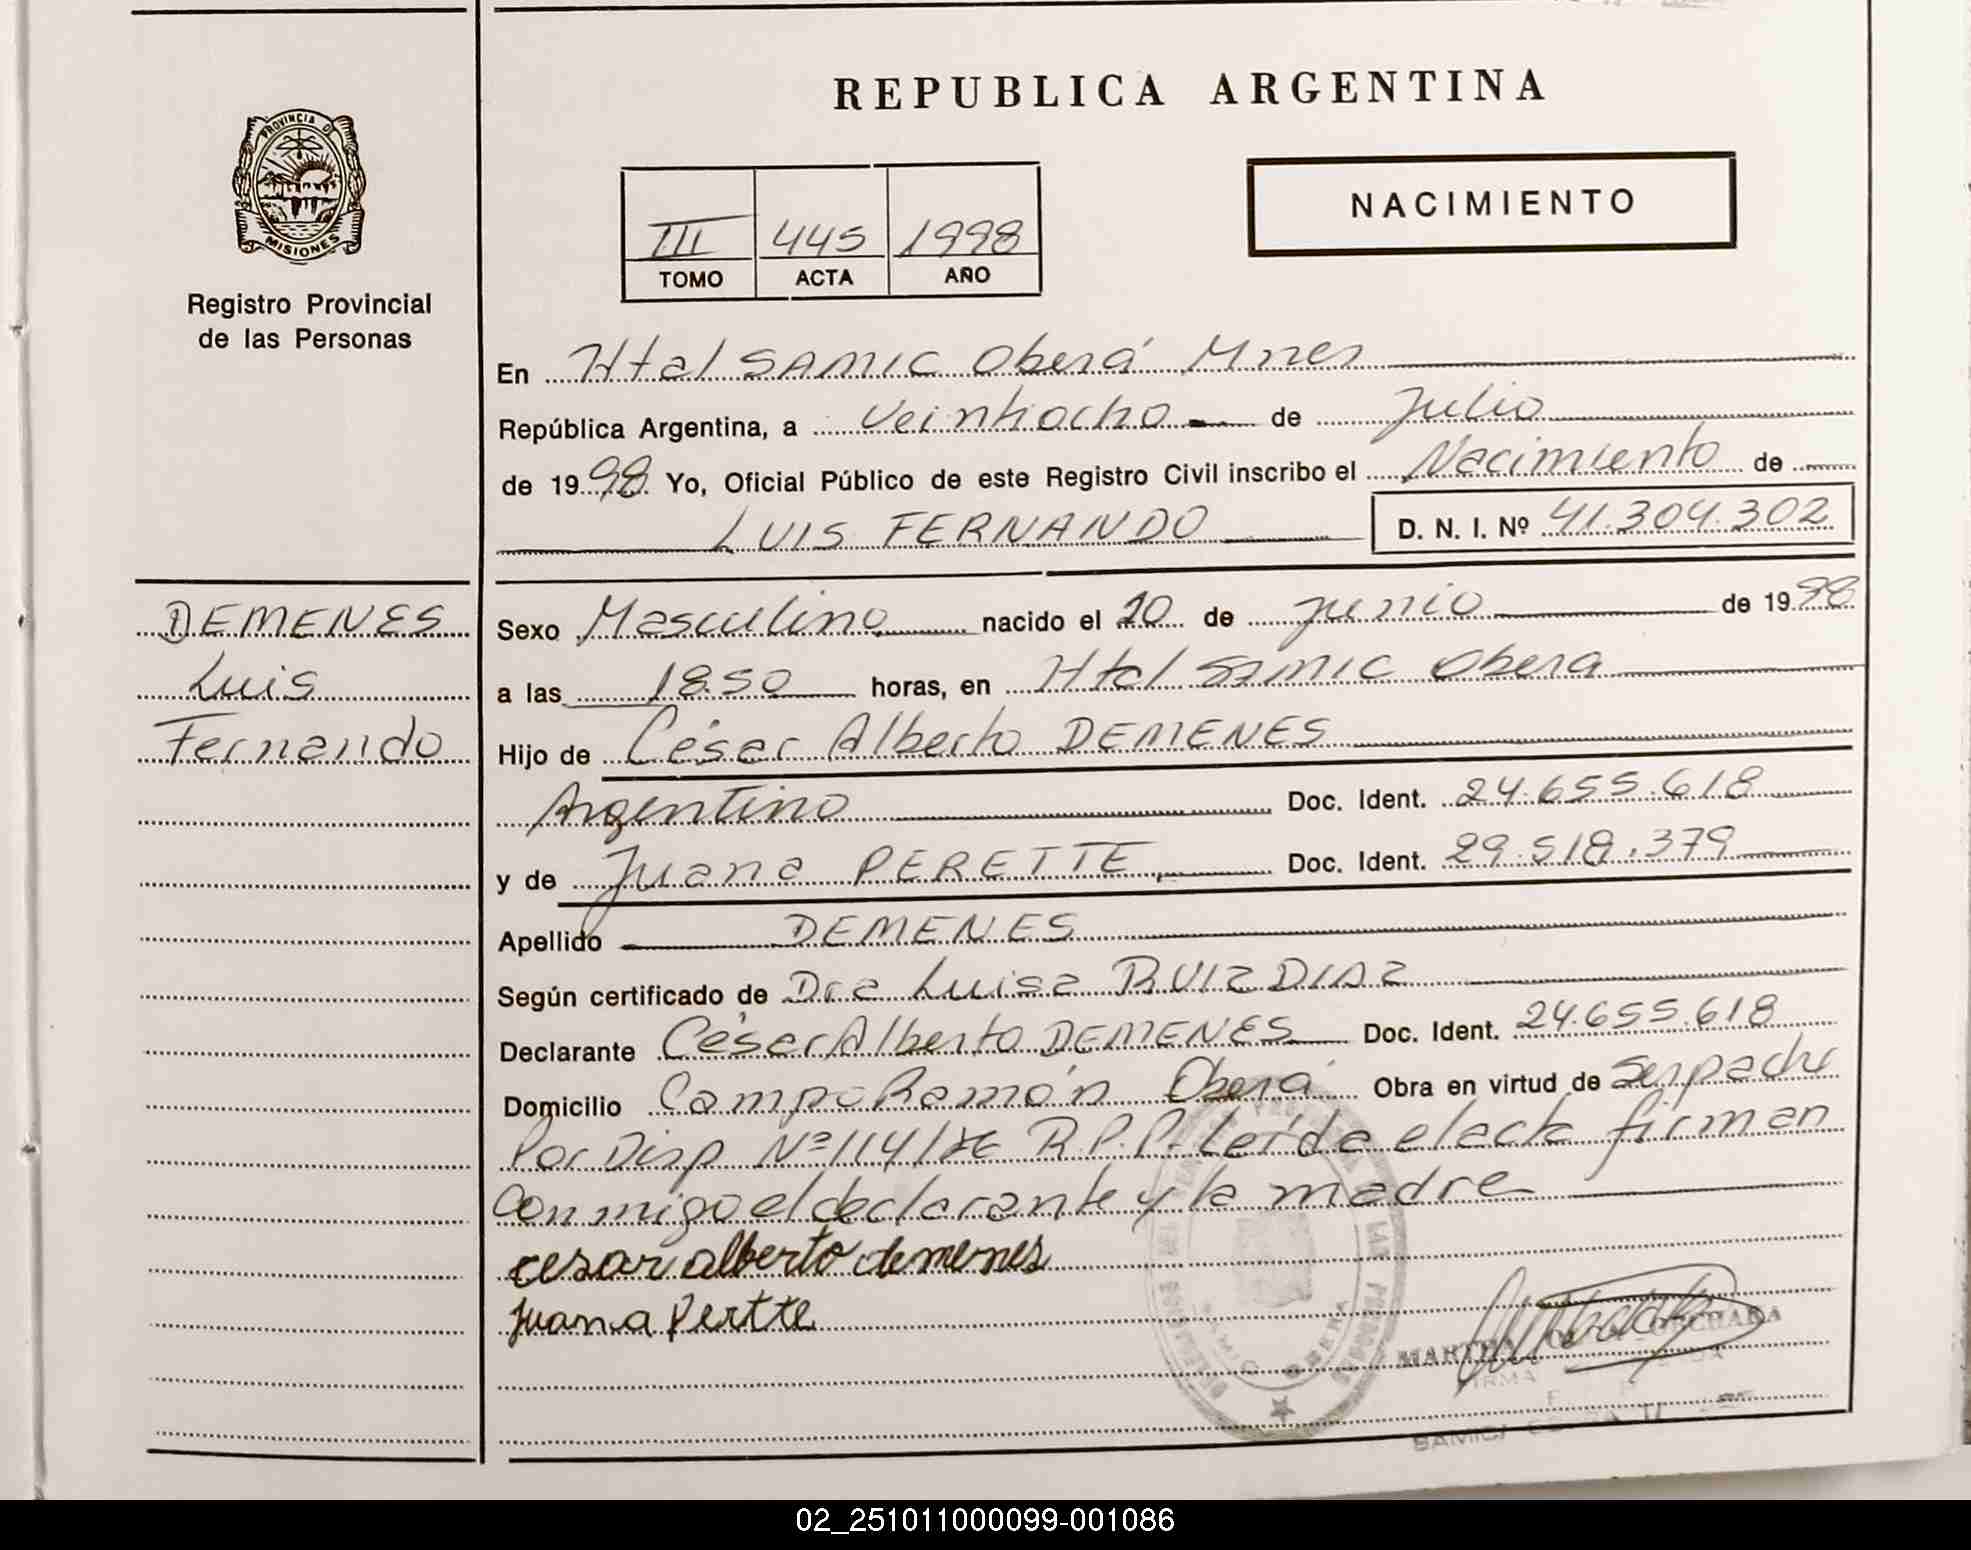 REPUBLICA ARGENTINA
PROVINCIA D
MISIONES
Registro Provincial
de las Personas
NACIMIENTO
III 445 1998
TOMO ACTA AÑO
En Htal SAMIC Oberá Mnes
República Argentina, a Veintiocho de Julio
de 1998 Yo, Oficial Público de este Registro Civil inscribo el Nacimiento de
LUIS FERNANDO D. N. I. Nº 41.304.302
DEMENES
Luis
Fernando
Sexo Masculino nacido el 20 de junio de 1998
a las 18.50 horas, en Htal SAMIC Obera
Hijo de César Alberto DEMENES
Argentino Doc. Ident. 24.655.618
y de Juana PERETTE Doc. Ident. 29.518.379
Apellido DEMENES
Según certificado de Dra Luisa RUIZ DIAZ
Declarante César Alberto DEMENES Doc. Ident. 24.655.618
Domicilio Campo Ramón Oberá Obra en virtud de
Por Disp Nº 114/ R.P.P. Leída el acta firman
conmigo el declarante y la madre
cesar alberto demenes
Juana Pertte
MARTHA
FIRMA
SAMIC
02_251011000099-001086